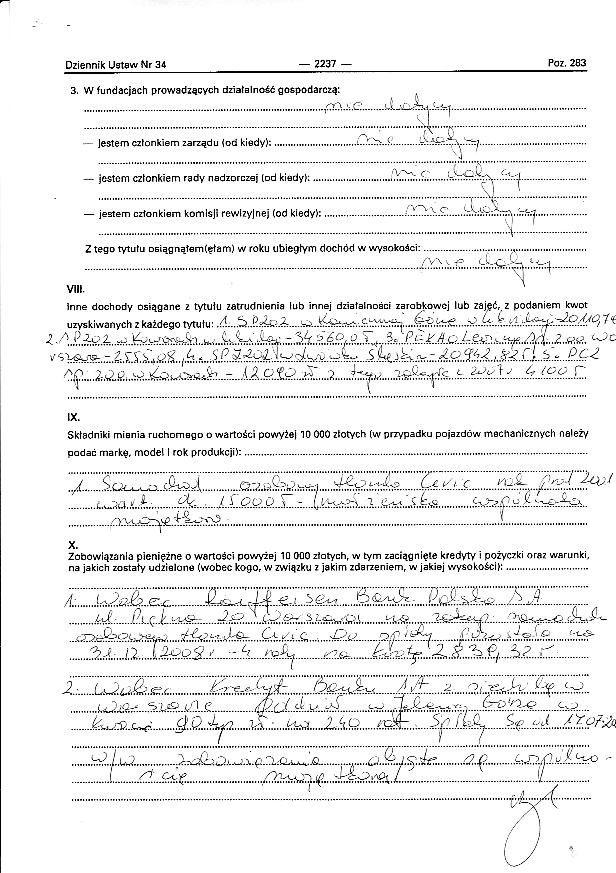 Dziennik Ustaw Nr 34 — 2237 — Poz. 283
3. W fundacjach prowadzących działalność gospodarczą:
nie dotyczy
— jestem członkiem zarządu (od kiedy): nie dotyczy
— jestem członkiem rady nadzorczej (od kiedy): nie dotyczy
— jestem członkiem komisji rewizyjnej (od kiedy): nie dotyczy
Z tego tytułu osiągnąłem(ęłam) w roku ubiegłym dochód w wysokości:
nie dotyczy
VIII.
Inne dochody osiągane z tytułu zatrudnienia lub innej działalności zarobkowej lub zajęć, z podaniem kwot
uzyskiwanych z każdego tytułu: 1. SPZOZ w Kamiennej Górze
2. SPZOZ w Kowarach - 34560,05, 3.
- 2555,08, 4. SPZOZ Wodzisław Śląski - 20942,82 5. PCZ
w Kowarach - 12090 zł z tego z 2007 r 4100
IX.
Składniki mienia ruchomego o wartości powyżej 10 000 złotych (w przypadku pojazdów mechanicznych należy
podać markę, model i rok produkcji):
1. Samochód osobowy Honda Civic rok prod 2001
wart. 15000 - (małżeńska wspólnota
majątkowa
X.
Zobowiązania pieniężne o wartości powyżej 10 000 złotych, w tym zaciągnięte kredyty i pożyczki oraz warunki,
na jakich zostały udzielone (wobec kogo, w związku z jakim zdarzeniem, w jakiej wysokości):
1. Wobec Raiffeisen Bank Polska S.A
ul. Piękna 20 Warszawa na zakup samochodu
osobowego Honda Civic Do spłaty pozostało na
31.12.2008r - 4 raty na kwotę 2839,32
2. Wobec Kredyt Banku S.A z siedzibą w
Warszawie Oddział w Jeleniej Górze w
kwocie 90 tys. zł. na 240 rat. Spłaty są od 17.07.20
w/w zobowiązania objęte są wspólno-
tą majątkową